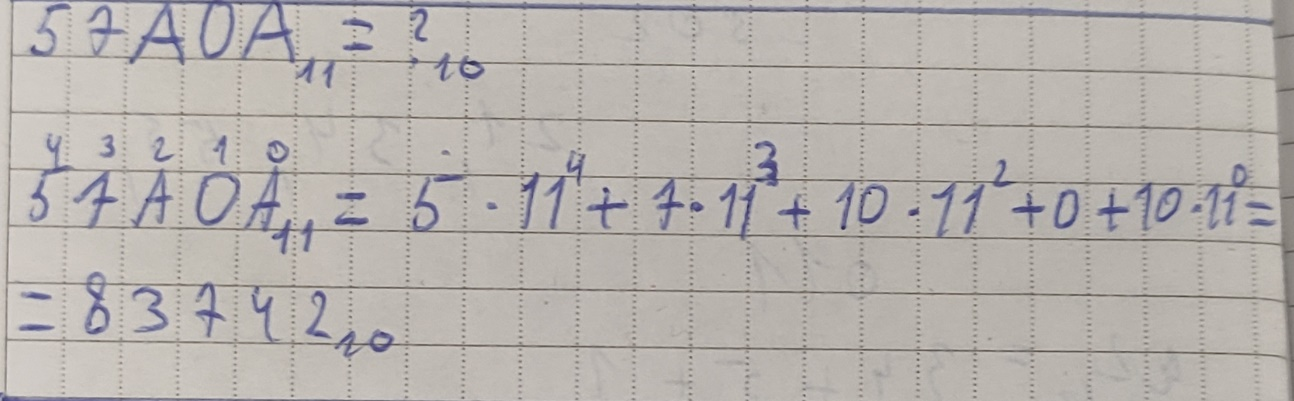 57A0A₁₁ = ?₁₀
4 3 2 1 0
57A0A₁₁ = 5 · 11⁴ + 7 · 11³ + 10 · 11² + 0 + 10 · 11⁰ =
= 83742₁₀